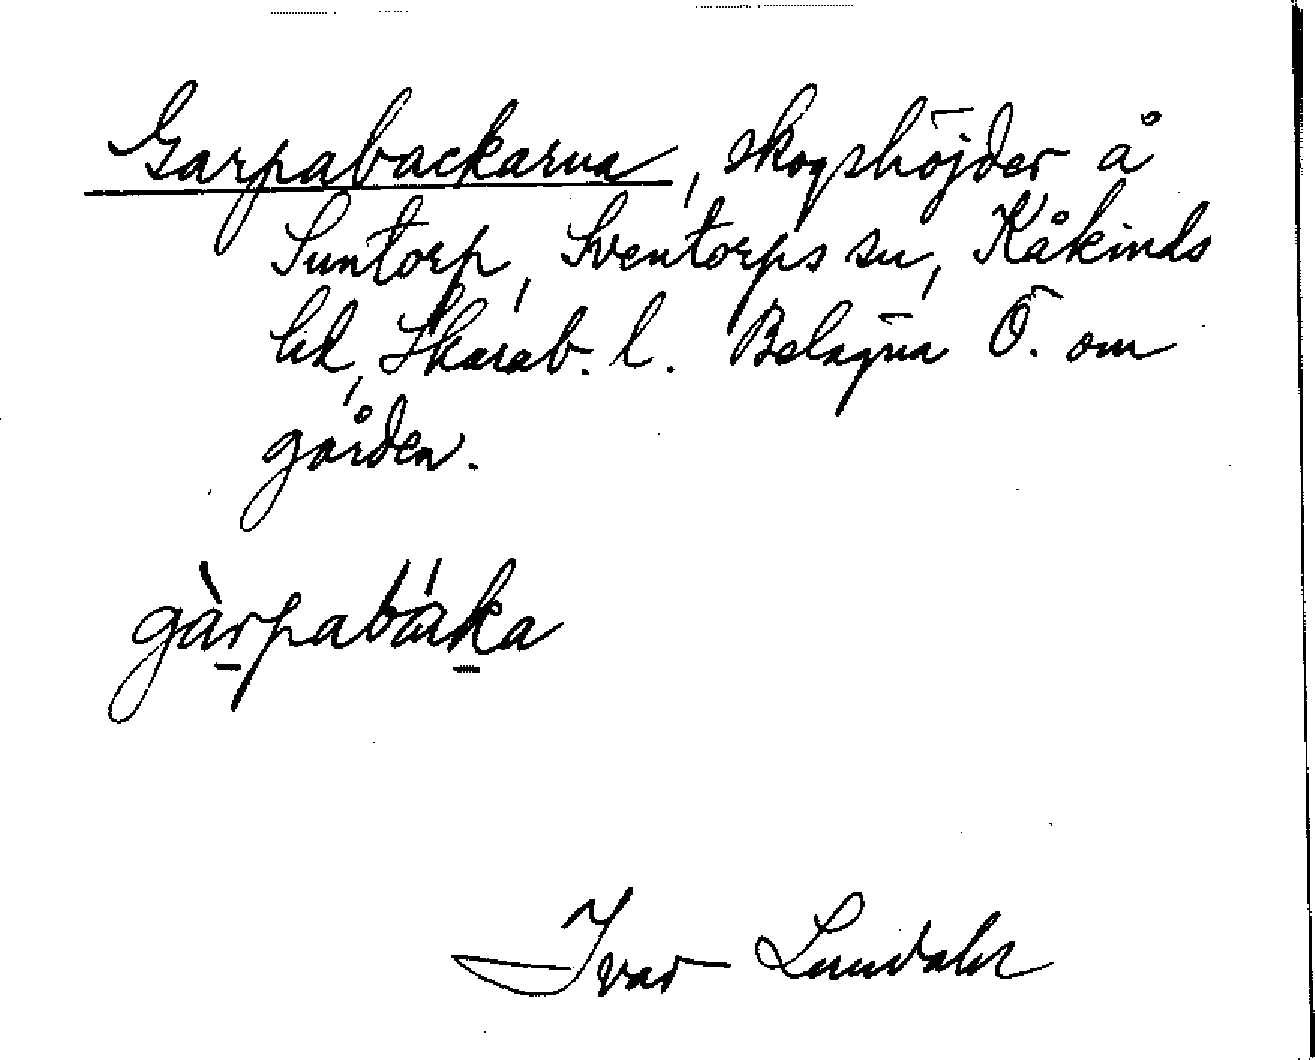 Garpabackarna, skogshöjder å
Suntorp, Sventorps sn, Kåkinds
hd, Skarab. l. Belägna Ö. om
gården.
gàrpabáka
Ivar Lundahl